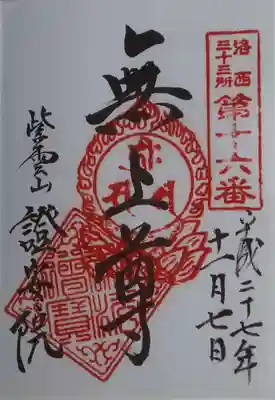 洛西
三十三所
第十六番
平成二十七年
十一月七日
無上尊
紫雲山 證安院